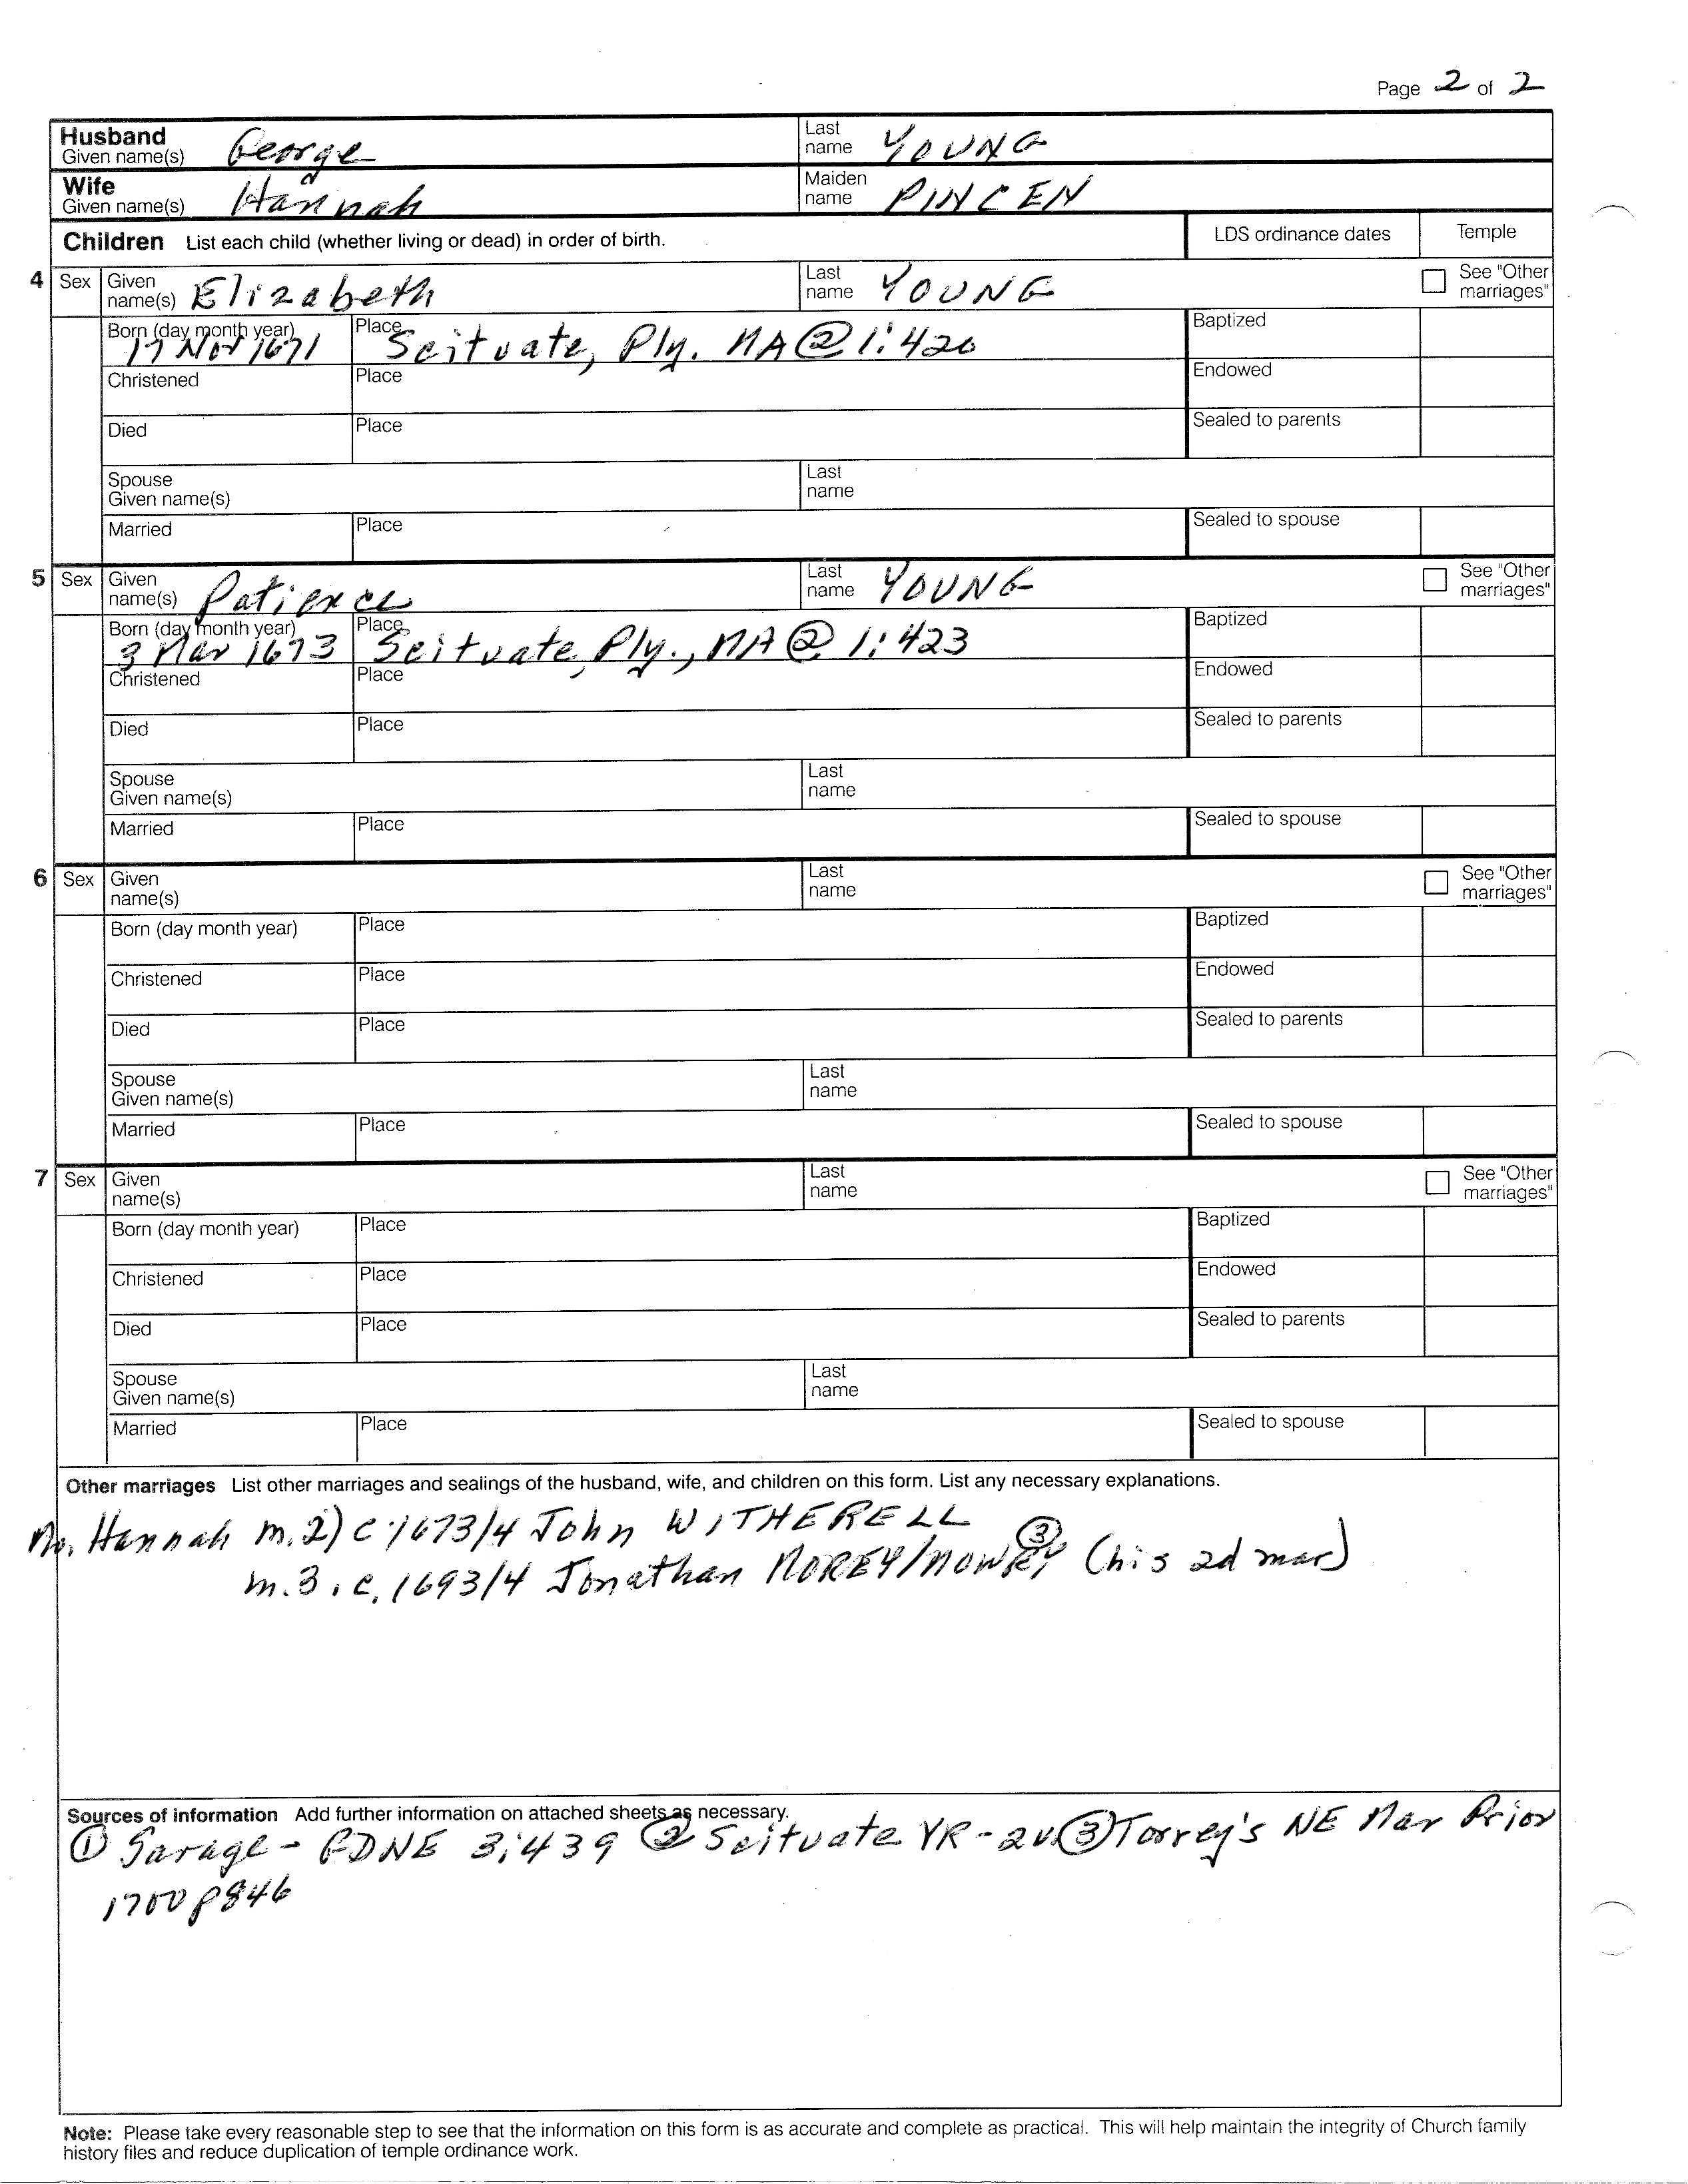 Page 2 of 2
Husband Given name(s) George Last name YOUNG
Wife Given name(s) Hannah Maiden name PINCEN
Children List each child (whether living or dead) in order of birth. LDS ordinance dates Temple
4 Sex Given name(s) Elizabeth Last name YOUNG See "Other marriages"
Born (day month year) 17 Nov 1671 Place Scituate, Ply. MA @ 1:420 Baptized
Christened Place Endowed
Died Place Sealed to parents
Spouse Given name(s) Last name
Married Place Sealed to spouse
5 Sex Given name(s) Patience Last name YOUNG See "Other marriages"
Born (day month year) 3 Mar 1673 Place Scituate, Ply., MA @ 1:423 Baptized
Christened Place Endowed
Died Place Sealed to parents
Spouse Given name(s) Last name
Married Place Sealed to spouse
6 Sex Given name(s) Last name See "Other marriages"
Born (day month year) Place Baptized
Christened Place Endowed
Died Place Sealed to parents
Spouse Given name(s) Last name
Married Place Sealed to spouse
7 Sex Given name(s) Last name See "Other marriages"
Born (day month year) Place Baptized
Christened Place Endowed
Died Place Sealed to parents
Spouse Given name(s) Last name
Married Place Sealed to spouse
Other marriages List other marriages and sealings of the husband, wife, and children on this form. List any necessary explanations.
Mo. Hannah m. 2) c 1673/4 John WITHERELL
m. 3. c. 1693/4 Jonathan MOREY/MOWRY ③ (his 2d mar)
Sources of information Add further information on attached sheets as necessary.
① Savage - GDNE 3:439 ② Scituate VR - 2v. ③ Torrey's NE Mar Prior
1700 p846
Note: Please take every reasonable step to see that the information on this form is as accurate and complete as practical. This will help maintain the integrity of Church family
history files and reduce duplication of temple ordinance work.